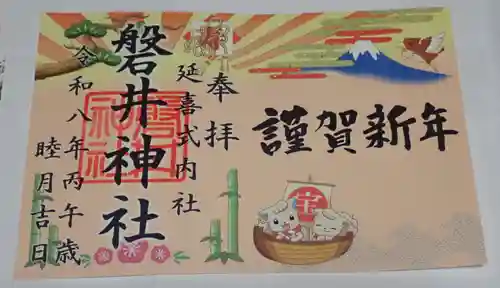 謹賀新年
奉拝
延喜式内社
磐井神社
令和八年丙午歳
睦月吉日
宝